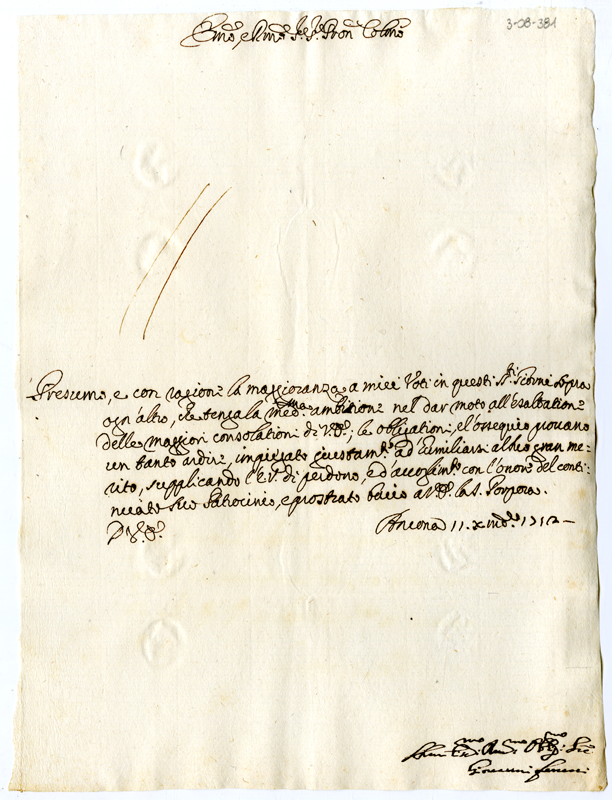 3-08-381
Emo, e Rmo Sr. Sr. Pron Colmo
Presumo, e con ragione la maggioranza a miei Voti in questi Sti Giorni sopra
ogn'altro, che tenga la medma ambitione nel dar moto all'esaltatione
delle maggiori consolationi di V. Eza; le obligationi, el ossequio
un tanto ardire, ad humiliarsi al suo gran me-
rito, supplicando l'E. V. di perdono, ed accogermi con l'onore del conti-
nuato suo Patrocinio, e prostrato bacio a V. Eza la S. Porpora.
D. V. Eza
Ancona 11. Xmbre 1712
Giovanni